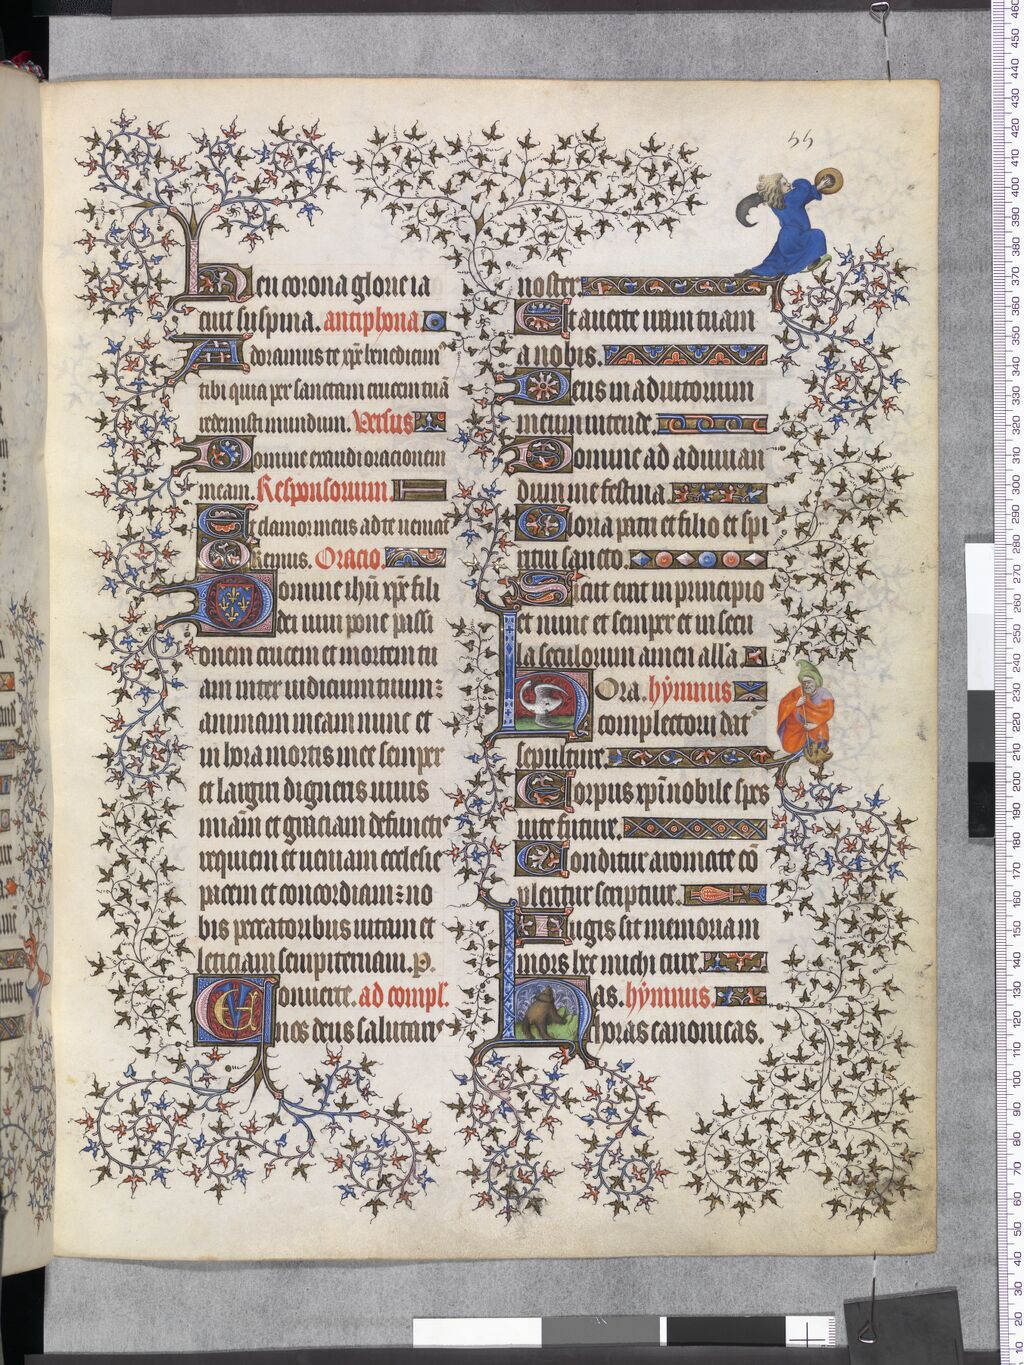 55
Seu corona glorie ia
cint su spina. antiphona.
Adoramus te xp̄e benedicim9
tibi quia per sanctam crucem tuā
redemisti mundum. Versus
Domine exaudi orationem
meam. Responsorium.
Et clamor meus ad te ueniat
Oremus. Oracio.
Domine ihū xp̄e fili
dei uiui pone passi
onem crucem et mortem tu
am inter iudicium tuum:
animam meam nunc et
in hora mortis mee semper
et largiri digneris uiuis
miām et graciam defunctis
requiem et ueniam ecclesie
pacem et concordiam: no
bis peccatoribus uitam et
leticiam sempiternam. p.
Conuerte. ad compl.
nos deus salutaris
noster.
Et auerte iram tuam
a nobis.
Deus in adiutorium
meum intende.
Domine ad adiuuan
dum me festina.
Gloria patri et filio et spi
ritui sancto.
Sicut erat in principio
et nunc et semper et in secu
la seculorum amen all'a.
Hora. hẏmnus
completorii dat9
sepulture.
Corpus xp̄i nobile spes
uite future.
Conditur aromate cō
plentur scripture.
Iugis sit memoria m
mors hec michi cure.
Has. hẏmnus.
horas canonicas.